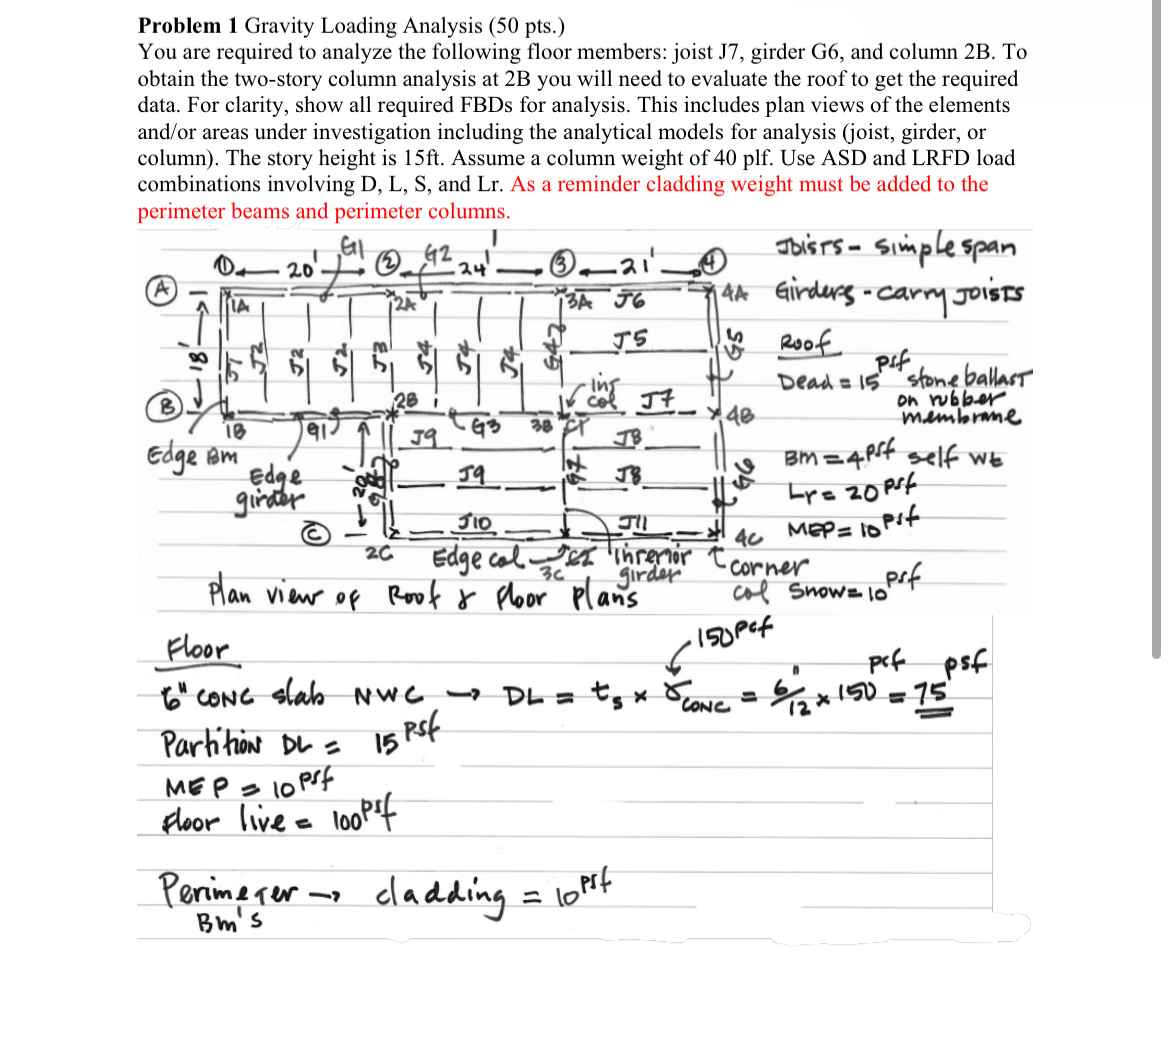 Problem 1 Gravity Loading Analysis (50 pts.)
You are required to analyze the following floor members: joist J7, girder G6, and column 2B. To
obtain the two-story column analysis at 2B you will need to evaluate the roof to get the required
data. For clarity, show all required FBDs for analysis. This includes plan views of the elements
and/or areas under investigation including the analytical models for analysis (joist, girder, or
column). The story height is 15ft. Assume a column weight of 40 plf. Use ASD and LRFD load
combinations involving D, L, S, and Lr. As a reminder cladding weight must be added to the
perimeter beams and perimeter columns.
Joists - simple span
Girders - carry joists
1 20' G1 2 G2 24' 3 21' 4
A 1A 2A 3A J6 4A
18' J1 J2 J2 J2 J3 J4 J4 J4 J5 G5
Roof
Dead = 15 psf stone ballast
on rubber
membrane
B 2B int col J7 4B
1B G3 3B J8
Edge Bm
Edge
girder
J9 J8 G6
J9
20'
BM = 4 psf self wt
Lr = 20 psf
MEP = 10 psf
Snow = 10 psf
C J10 J11
2C Edge col 3C interior girder 4C corner col
Plan view of Roof & floor plans
Floor
150 pcf
6" CONC slab NWC → DL = ts × γCONC = 6"/12 × 150 pcf = 75 psf
Partition DL = 15 psf
MEP = 10 psf
Floor live = 100 psf
Perimeter → cladding = 10 psf
Bm's